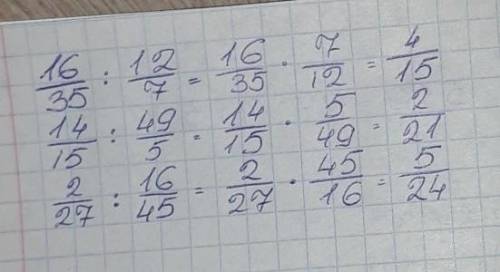 16/35 : 12/7 = 16/35 · 7/12 = 4/15
14/15 : 49/5 = 14/15 · 5/49 = 2/21
2/27 : 16/45 = 2/27 · 45/16 = 5/24